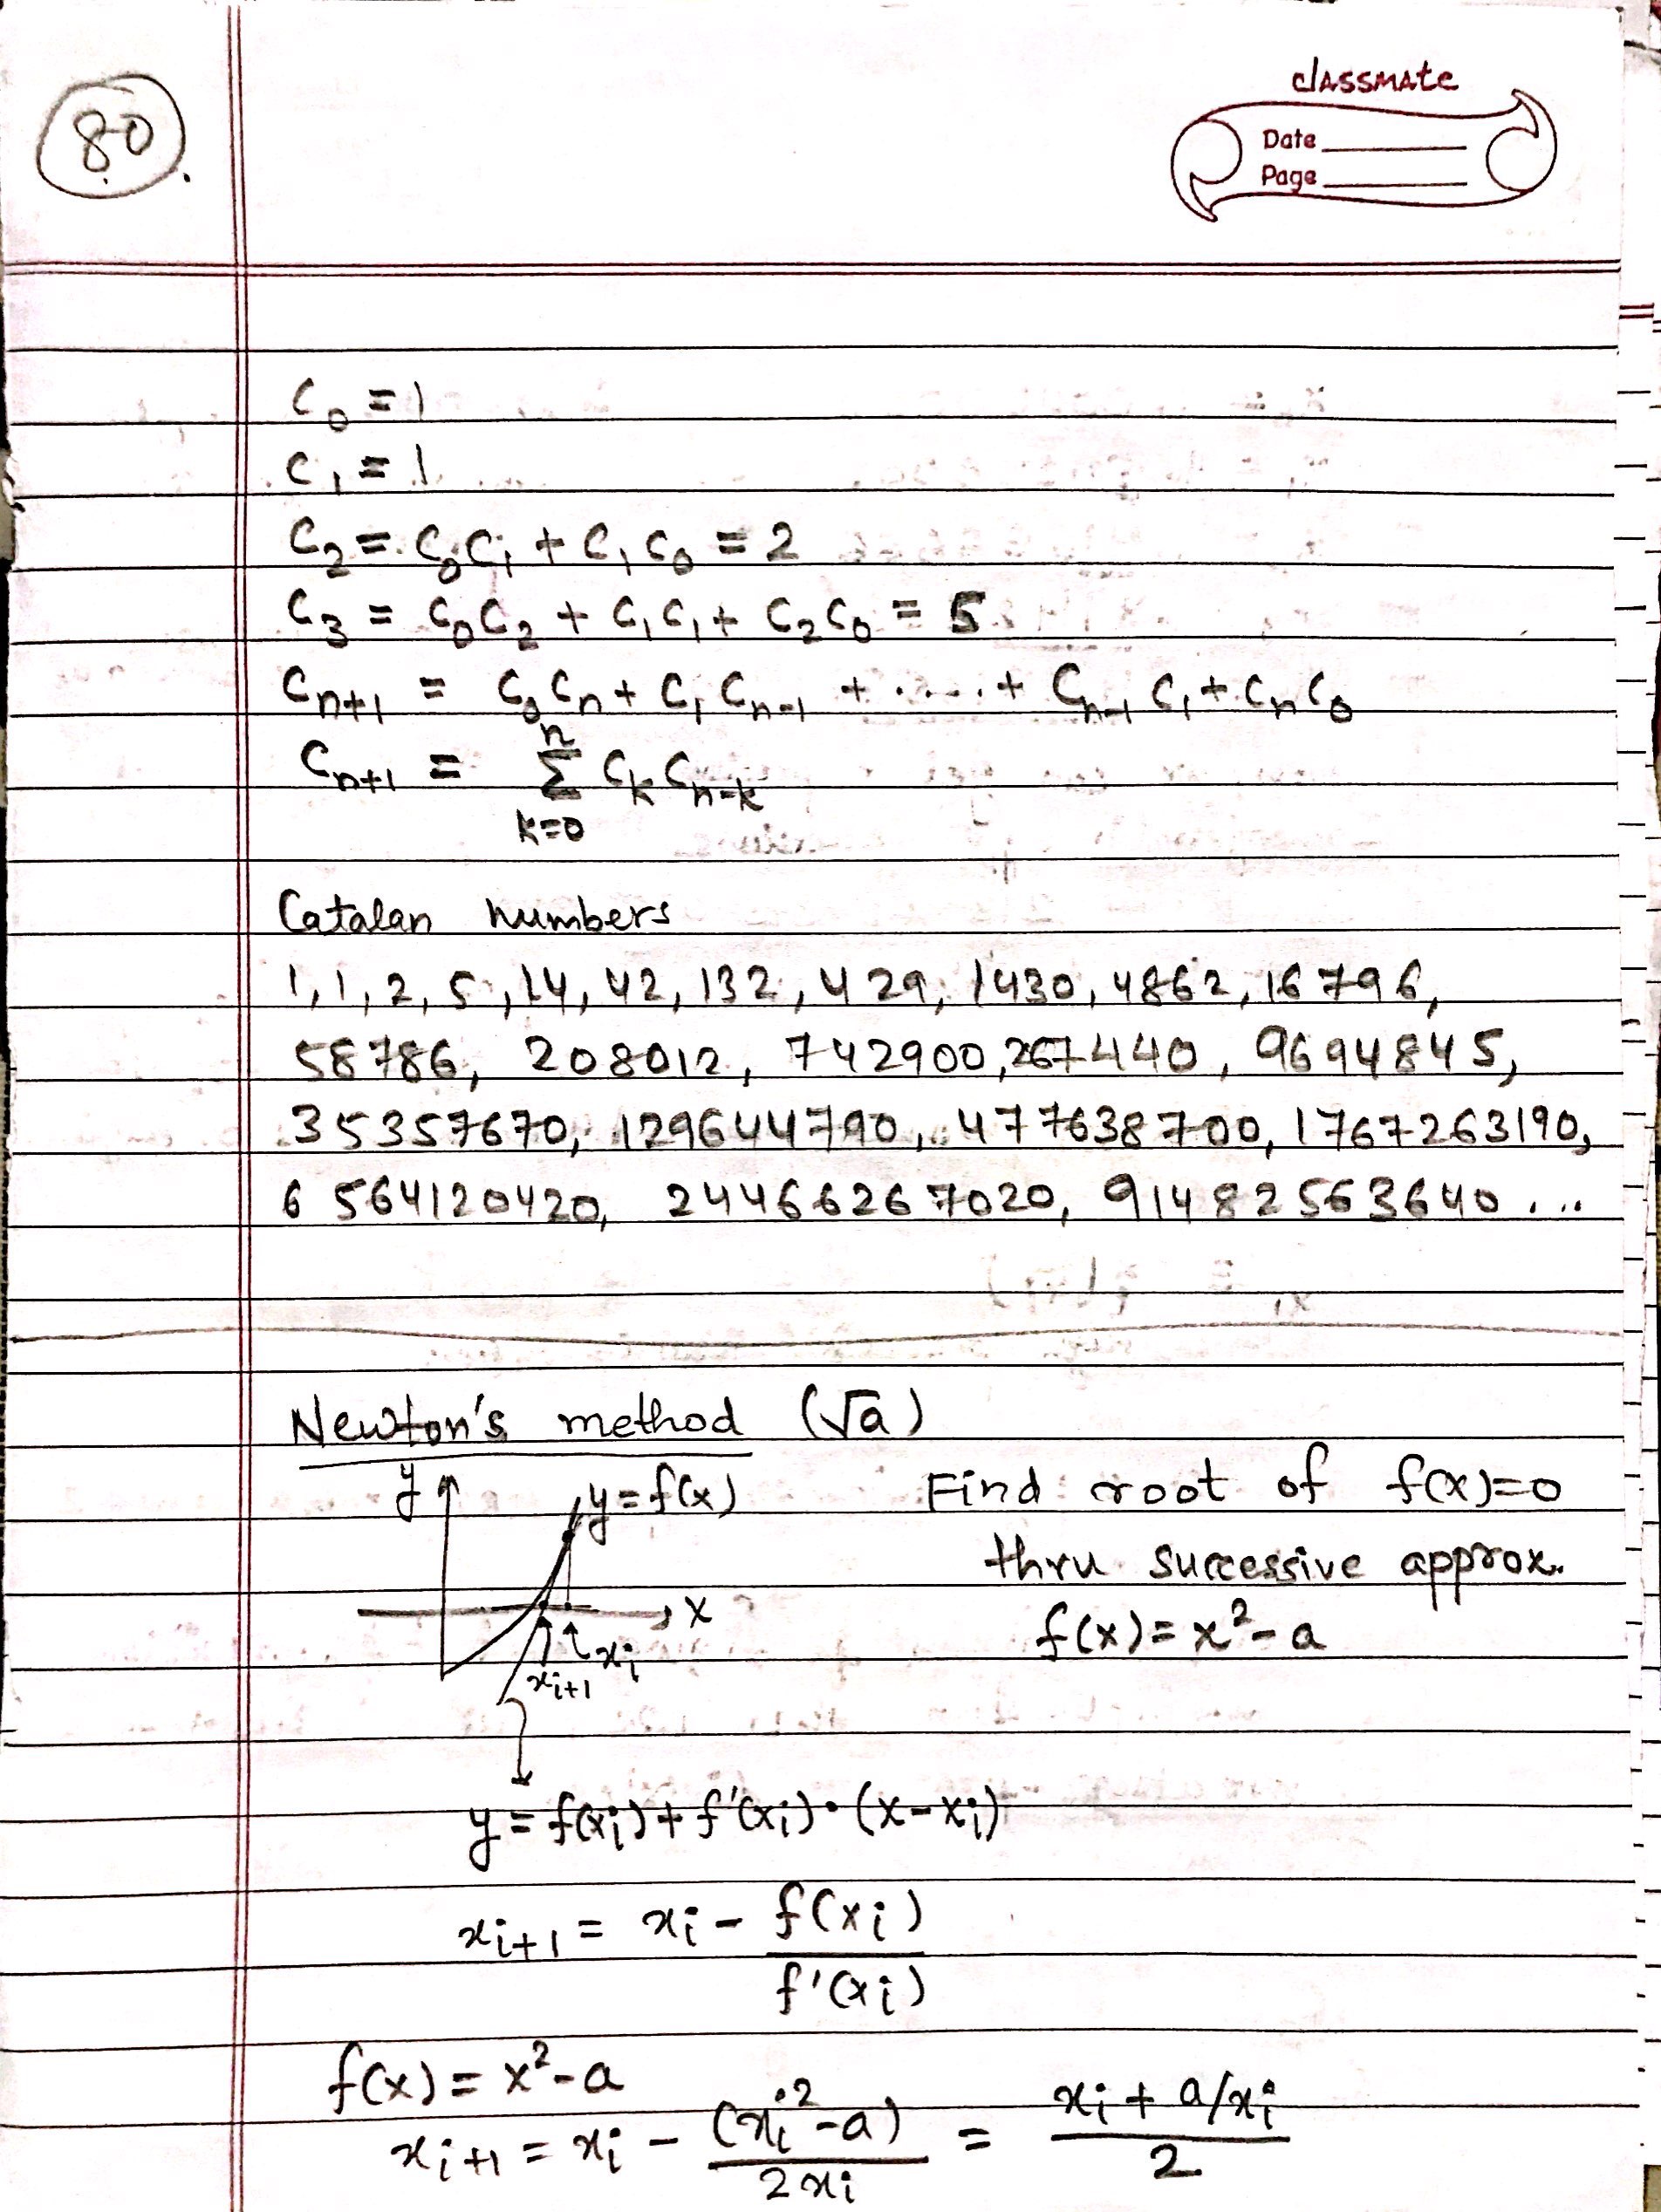 80
classmate
Date
Page
C₀ = 1
C₁ = 1
C₂ = C₀C₁ + C₁C₀ = 2
C₃ = C₀C₂ + C₁C₁ + C₂C₀ = 5
Cₙ₊₁ = C₀Cₙ + C₁Cₙ₋₁ + ..... + Cₙ₋₁C₁ + CₙC₀
Cₙ₊₁ = Σ_{k=0}^{n} C_k C_{n-k}
Catalan numbers
1, 1, 2, 5, 14, 42, 132, 429, 1430, 4862, 16796,
58786, 208012, 742900, 267440, 9694845,
35357670, 129644790, 477638700, 1767263190,
6564120420, 24466267020, 91482563640 ...
Newton's method (√a)
y y=f(x) Find root of f(x)=0
thru successive approx.
x f(x) = x² - a
xᵢ
xᵢ₊₁
y = f(xᵢ) + f'(xᵢ)·(x-xᵢ)
xᵢ₊₁ = xᵢ - f(xᵢ)/f'(xᵢ)
f(x) = x² - a
xᵢ₊₁ = xᵢ - (xᵢ² - a)/2xᵢ = (xᵢ + a/xᵢ)/2